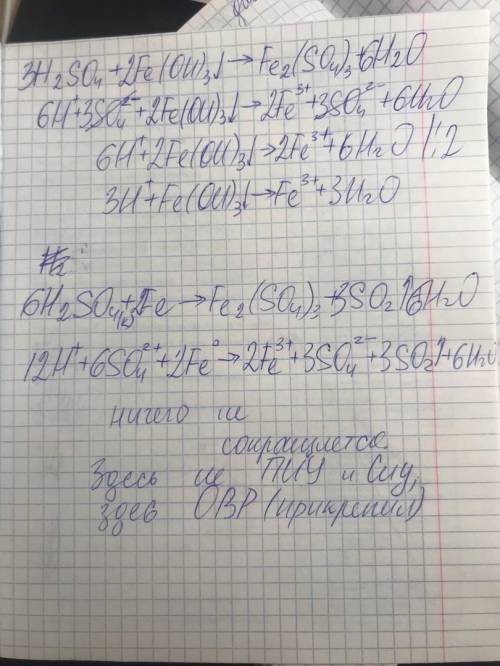 3H₂SO₄+2Fe(OH)₃↓→Fe₂(SO₄)₃+6H₂O
6H⁺+3SO₄²⁻+2Fe(OH)₃↓→2Fe³⁺+3SO₄²⁻+6H₂O
6H⁺+2Fe(OH)₃↓→2Fe³⁺+6H₂O |:2
3H⁺+Fe(OH)₃↓→Fe³⁺+3H₂O
6H₂SO₄(к)+2Fe→Fe₂(SO₄)₃+3SO₂↑+6H₂O
12H⁺+6SO₄²⁺+2Fe⁰→2Fe³⁺+3SO₄²⁻+3SO₂↑+6H₂O
ничего не
сокращается
Здесь не ПИУ и СИУ,
здесь ОВР (прикрепил)